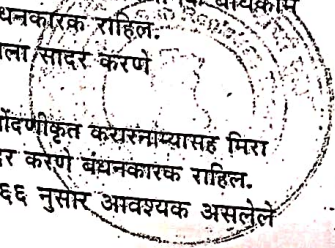 बांधकाम
धनकारक राहिल.
ला सादर करणे
नोंदणीकृत करारनाम्यासह मिरा
दर करणे बंधनकारक राहिल.
६६ नुसार आवश्यक असलेले